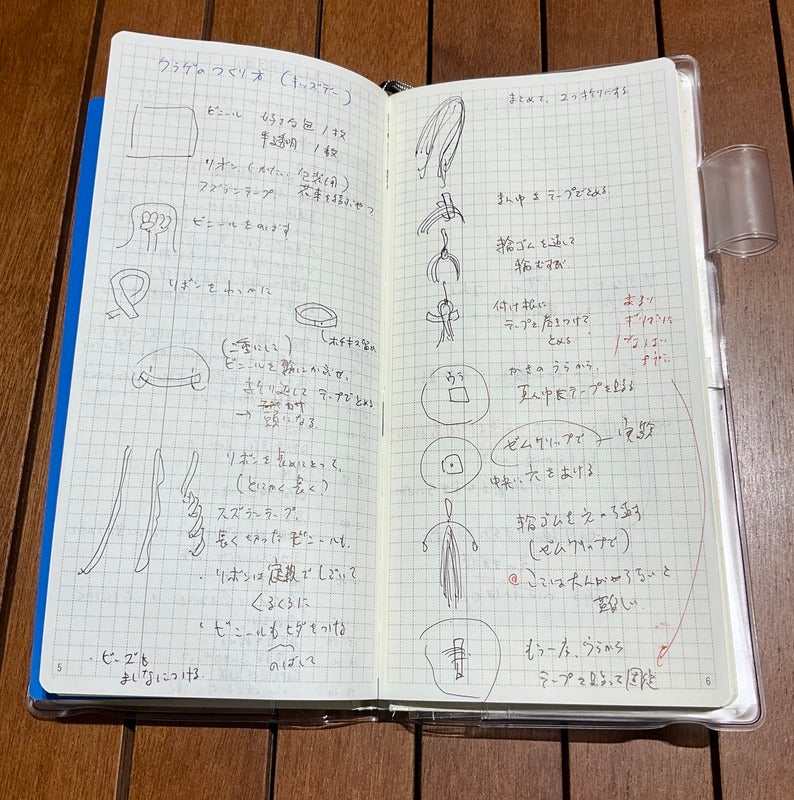 クラゲのつくり方 (キッズデー)
ビニール 好きな色 1枚
半透明 1枚
リボン (かたい、包装用)
スズランテープ 花束を結ぶやつ
ビニールをのばす
リボンをわっかに
(ホチキス留め
(二重にして)
ビニールを輪にかぶせ、
折り返して テープでとめる
→ 頭になる
リボンを長めにとって、
(とにかく長く)
スズランテープ、
長く切ったビニールも、
・リボンは定規でしごいて
くるくるに
・ビニールもヒダをつける
のばして
・ビーズも
5
まとめて、2つ折りにする
まん中をテープでとめる
輪ゴムを通して
輪むすび
付け根に
テープを巻きつけて
とめる
あまり
ギリギリに
ならない
ように
かさのうらから、
真ん中にテープを貼る
ウラ
ゼムクリップで
中央に穴をあける
輪ゴムを穴へ通す
(ゼムクリップで)
@ ここは大人がやらないと
難しい
もう一度、うらから
テープを貼って固定
6